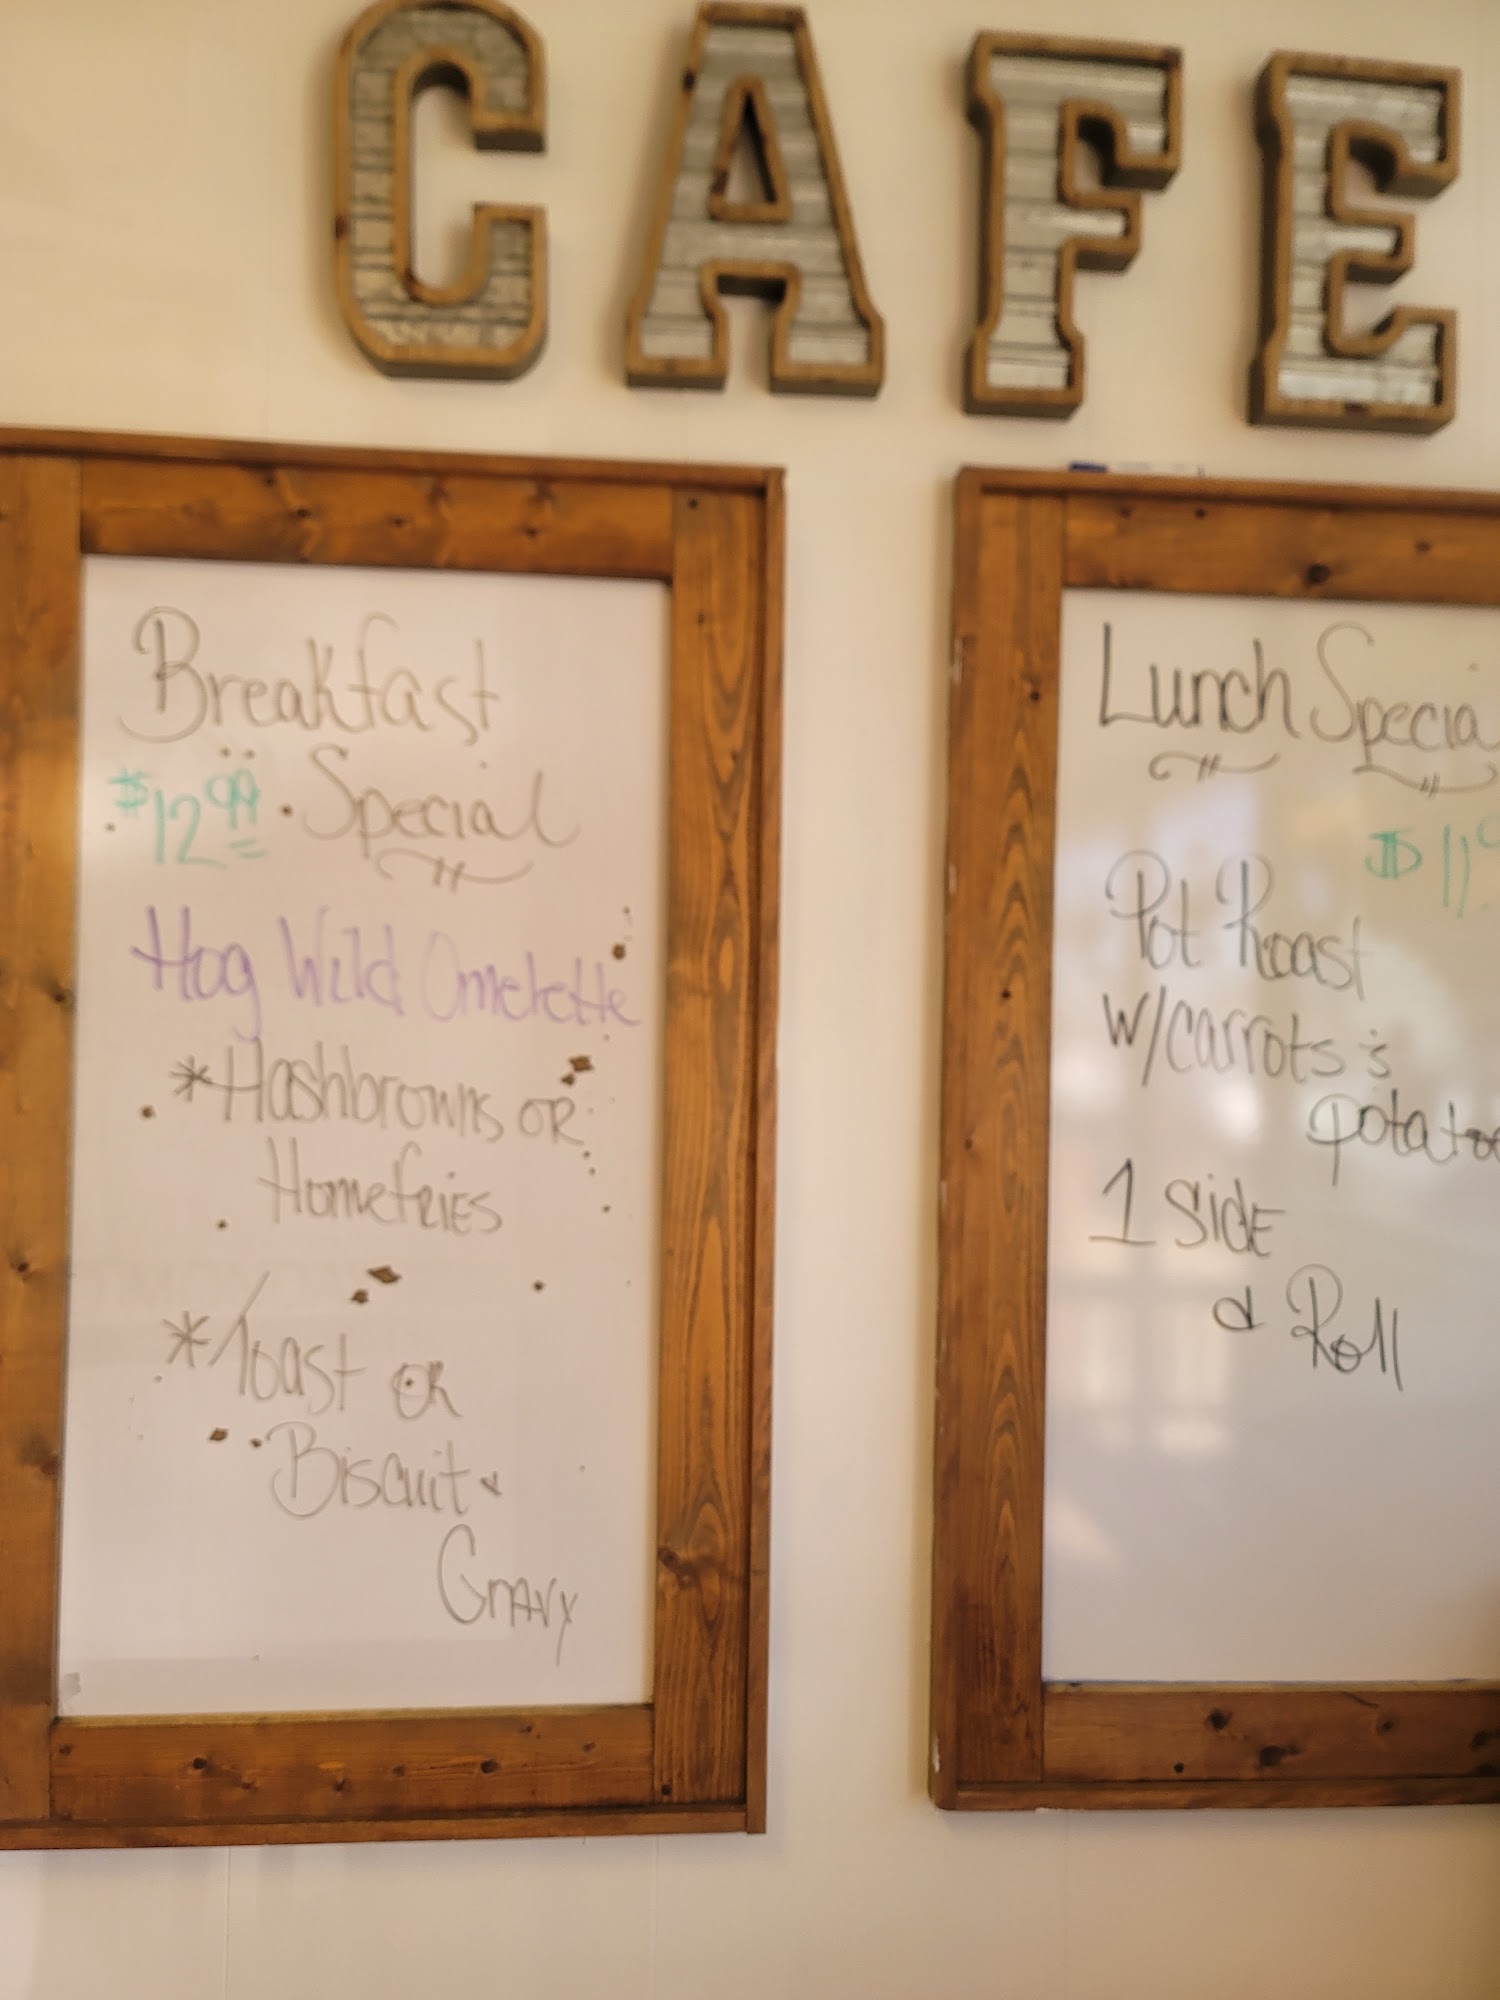 CAFE
Breakfast
$12.99 Special
Hog Wild Omelette
*Hashbrowns OR
Homefries
*Toast OR
Biscuit &
Gravy
Lunch Specia
$11.
Pot Roast
w/carrots &
potatoe
1 Side
& Roll